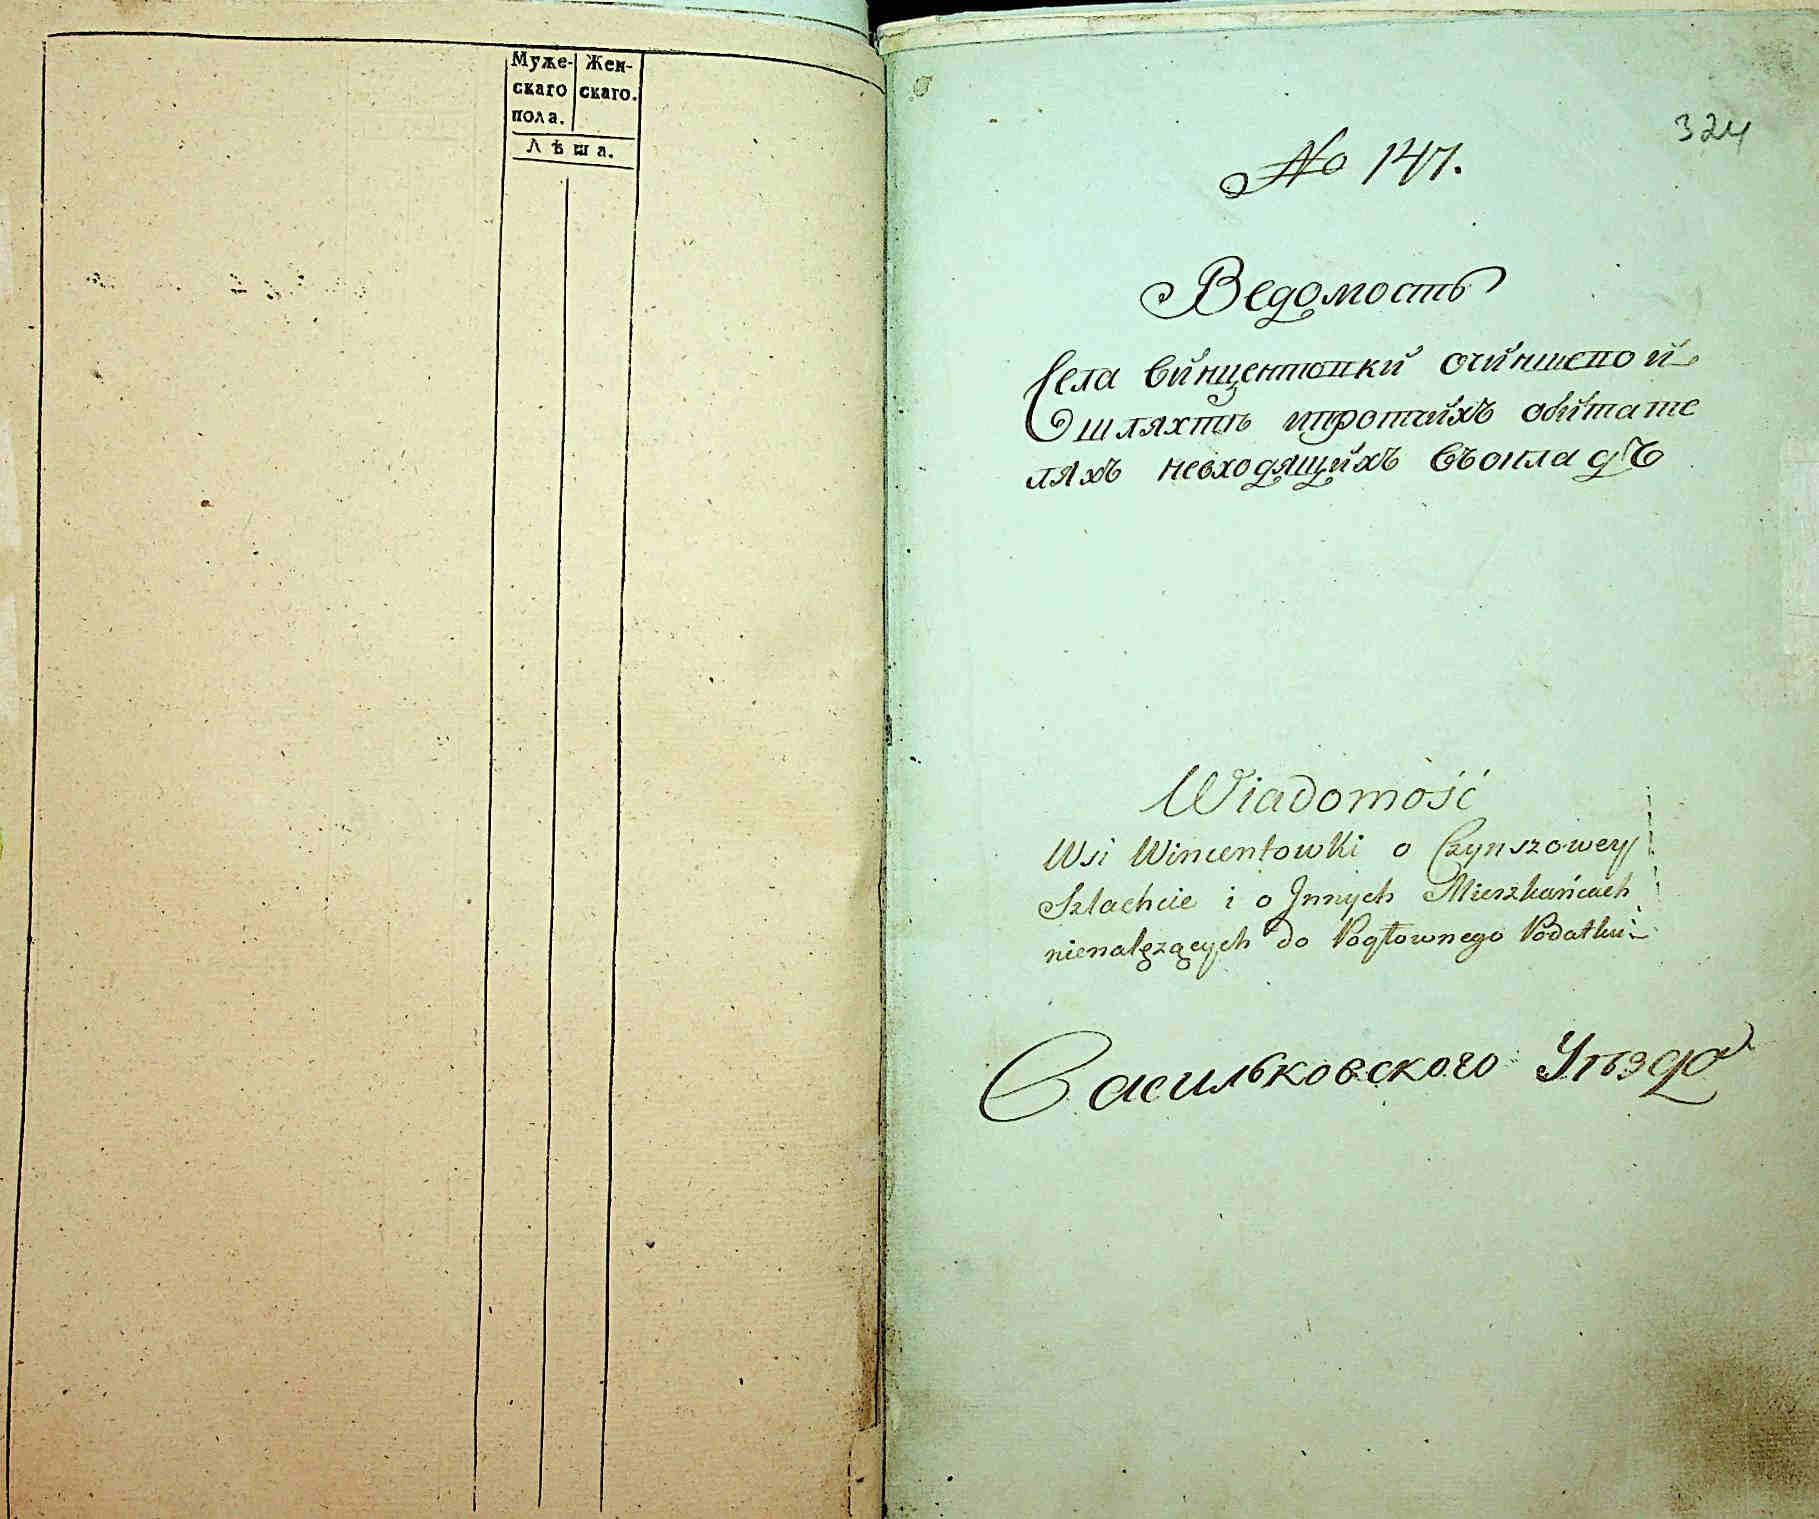 Муже- Жен-
скаго скаго.
пола.
Лѣта.
324
No 147.
Ведомость
Села винцентовки очиншевой
шляхтѣ ипротчихъ обитате
ляхъ невходящихъ въокладъ
Wiadomość
Wsi Wincentowki o Czynszowey
Szlachcie i o Jnnych Mieszkańcach
nienależących do Pogłownego Podatku
Васильковского Уѣзда